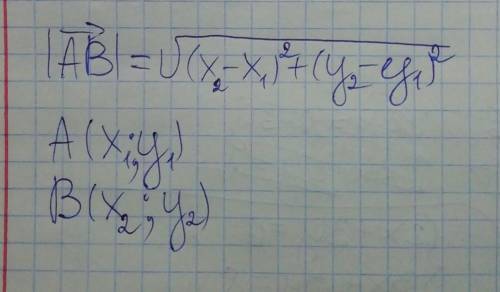 |AB| = √(x₂-x₁)²+(y₂-y₁)²
A(x₁;y₁)
B(x₂;y₂)